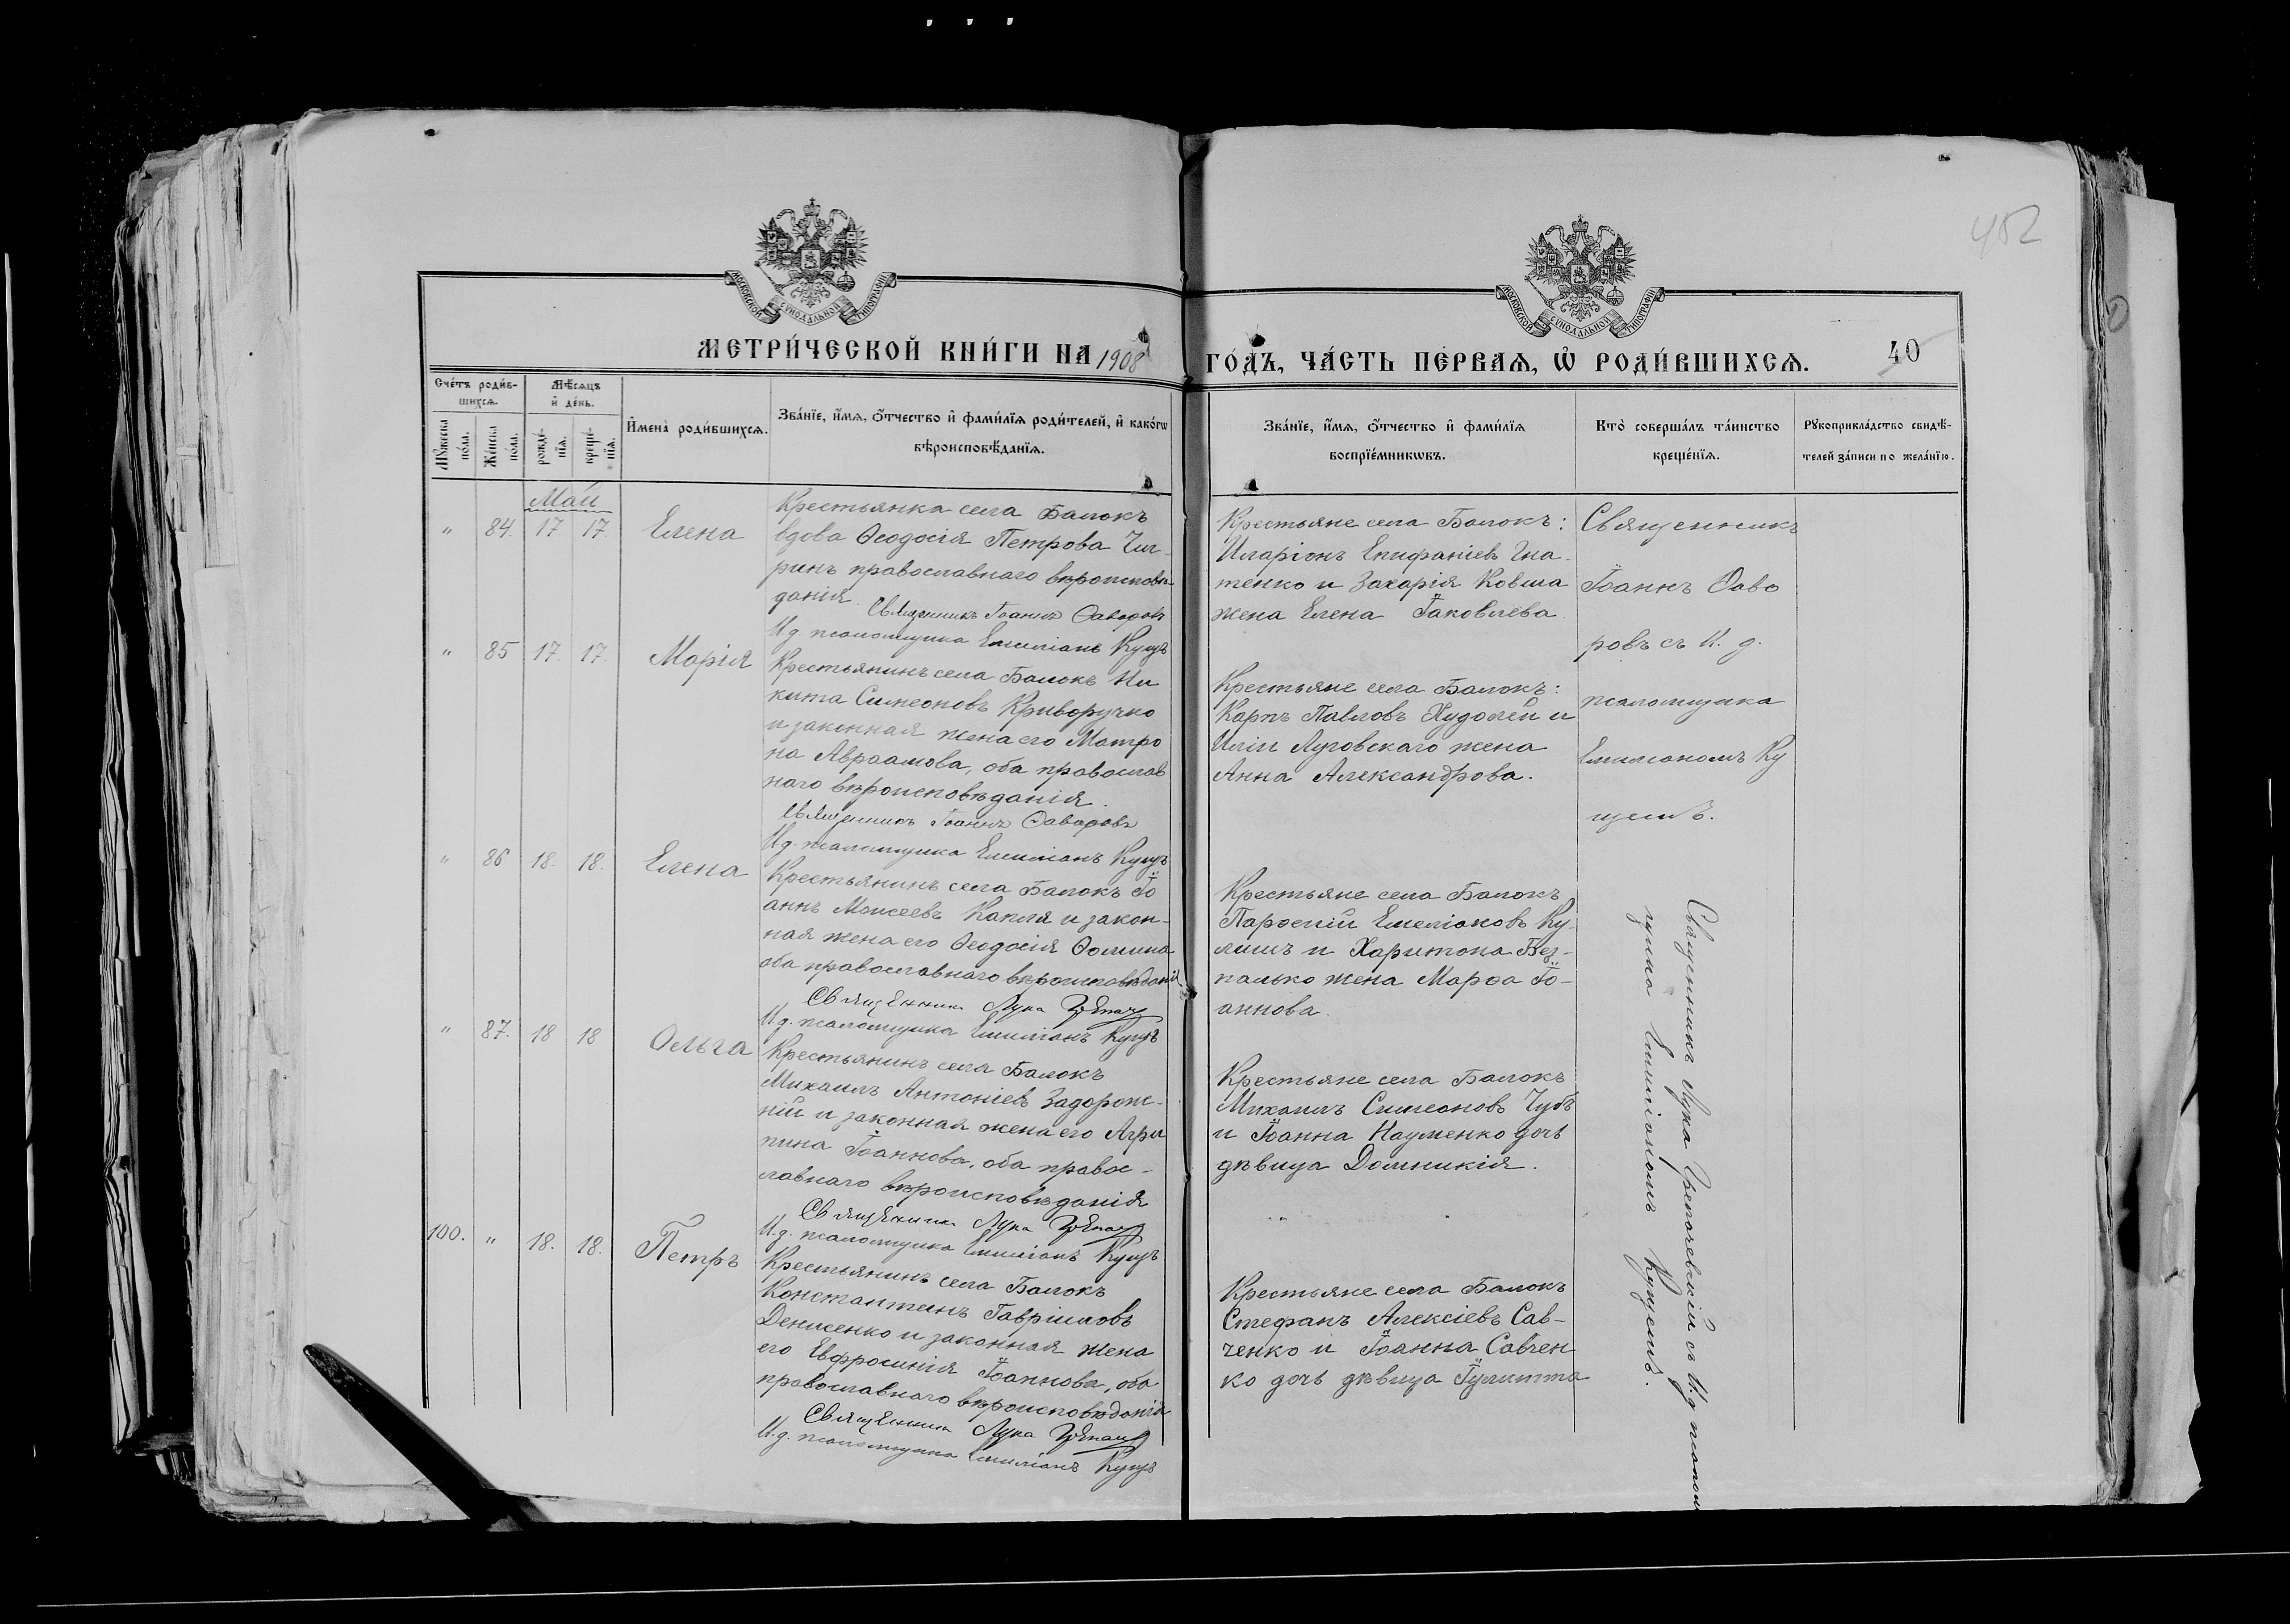 452
МОСКОВСКОЙ СУНОДАЛЬНОЙ ТИПОГРАФІИ
МОСКОВСКОЙ СУНОДАЛЬНОЙ ТИПОГРАФІИ
МЕТРИ́ЧЕСКОЙ КНИ́ГИ НА 1908
ГО́ДЪ, ЧА́СТЬ ПЕ́РВАѦ, Ѡ҆ РОДИ́ВШИХСѦ.
40
Сче́тъ роди́в-
шихсѧ.
Мѣ́сѧцъ
и҆ де́нь.
Мꙋ́жеска
по́ла.
Же́нска
по́ла.
рожде́-
нїѧ.
креще́-
нїѧ.
И҆мена̀ роди́вшихсѧ.
Зва́нїе, и҆́мѧ, ѻ҆́тчество и҆ фами́лїѧ роди́телей, и҆ како́гѡ
вѣроисповѣ́данїѧ.
Зва́нїе, и҆́мѧ, ѻ҆́тчество и҆ фами́лїѧ
воспрїе́мникѡвъ.
Кто̀ соверша́лъ та́инство
креще́нїѧ.
Рꙋкоприкла́дство свидѣ́-
телей за́писи по жела́нїю.
Май
" 84. 17 17. Елена
Крестьянка села Балокъ
вдова Ѳеодосія Петрова Чиг-
ринъ православнаго вѣроисповѣ-
данія.
Священникъ Іоаннъ Ѳаворовъ
И.д. псаломщика Емиліанъ Кущъ
Крестьяне села Балокъ:
Иларіонъ Епифаніевъ Гна-
тенко и Захарія Ковша
жена Елена Іаковлева
Священникъ
Іоаннъ Ѳаво
ровъ съ И. д.
псаломщика
Емиліаномъ Ку
щемъ.
" 85 17. 17. Марія
Крестьянинъ села Балокъ Ни
кита Симеоновъ Криворучко
и законная жена его Матро
на Авраамова, оба православ
наго вѣроисповѣданія.
Священникъ Іоаннъ Ѳаворовъ
И.д. псаломщика Емиліанъ Кущъ
Крестьяне села Балокъ:
Карпъ Павловъ Худолей и
Иліи Луговскаго жена
Анна Александрова.
" 86 18. 18. Елена
Крестьянинъ села Балокъ Іо
аннъ Моисеевъ Капля и закон-
ная жена его Ѳеодосія Ѳомина
оба православнаго вѣроисповѣданія
Священникъ Лука
И.д. псаломщика Емиліанъ Кущъ
Крестьяне села Балокъ
Емеліановъ Ку-
лишъ и Харитона Без-
палько жена Марѳа Іо-
аннова.
Священникъ Лука съ И.д. псалом
щика Емиліаномъ Кущемъ.
" 87. 18 18 Ольга
Крестьянинъ села Балокъ
Михаилъ Антоніевъ Задорож-
ній и законная жена его Агри
пина Іоаннова, оба правос-
лавнаго вѣроисповѣданія
Священникъ Лука
И.д. псаломщика Емиліанъ Кущъ
Крестьяне села Балокъ
Михаилъ Симеоновъ Чубъ
и Іоанна Науменко дочь
дѣвица Домникія.
100. " 18. 18. Петръ
Крестьянинъ села Балокъ
Константинъ Гавріиловъ
Денисенко и законная жена
его Евфросинія Іоаннова, оба
православнаго вѣроисповѣданія
Священникъ Лука
И.д. псаломщика Емиліанъ Кущъ
Крестьяне села Балокъ
Стефанъ Алексіевъ Сав-
ченко и Іоанна Савчен
ко дочь дѣвица Іулитта